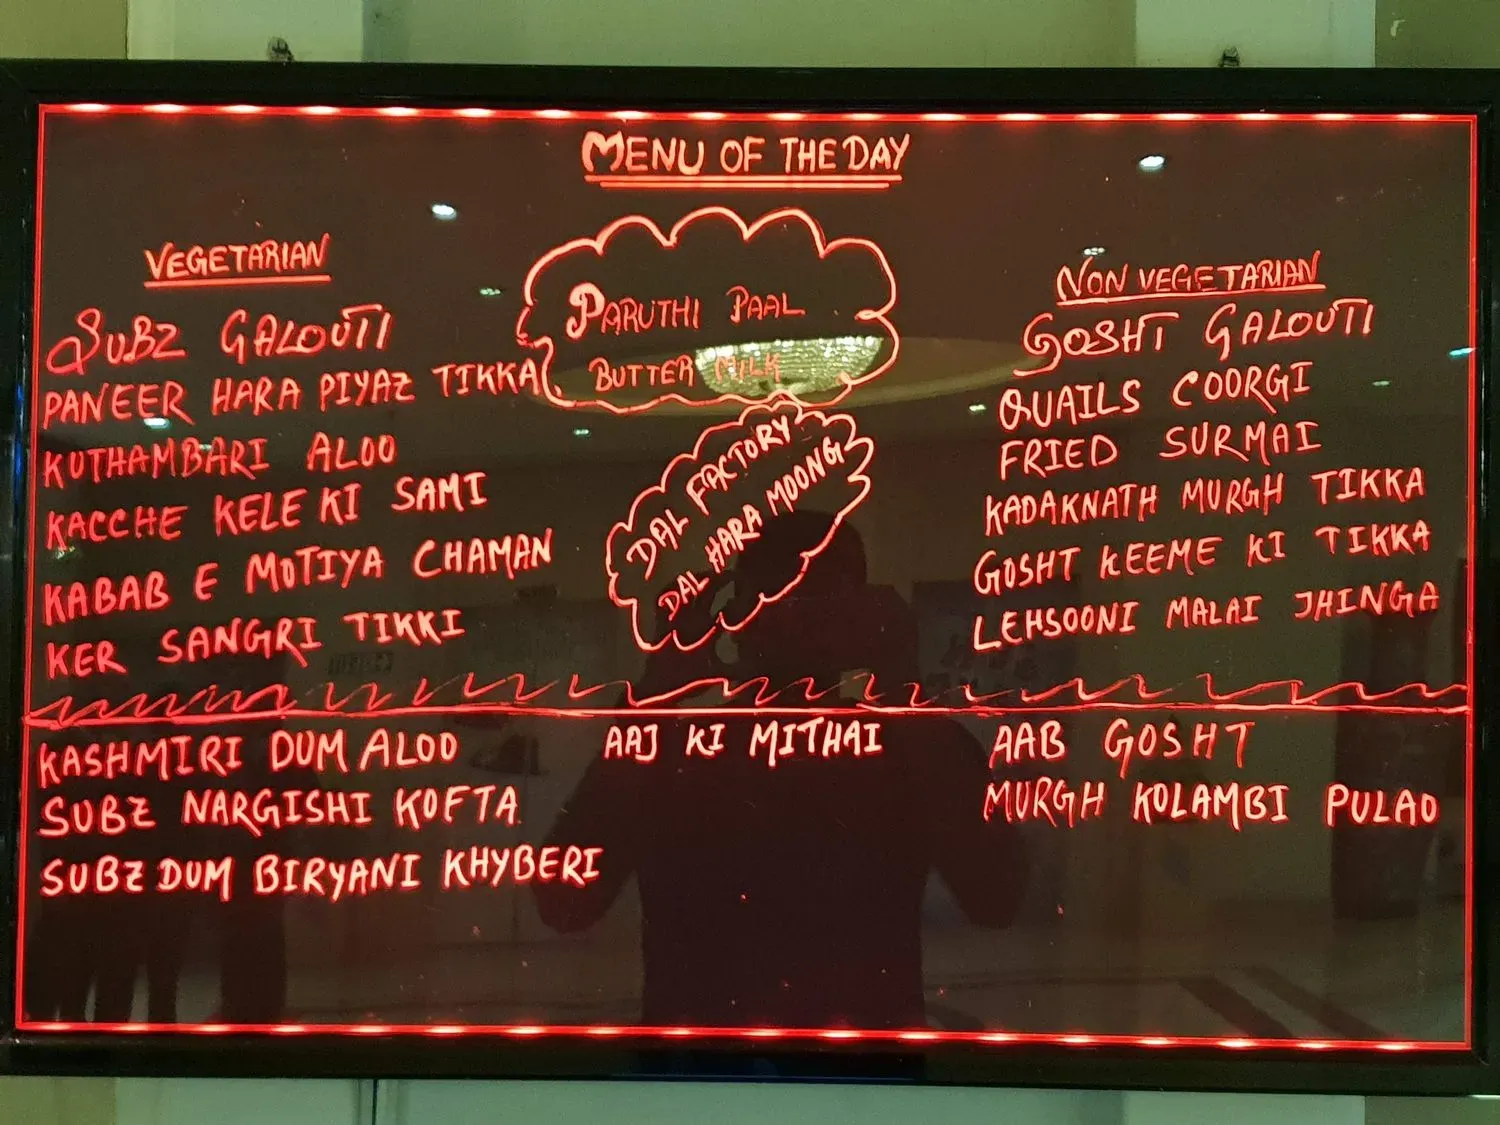 MENU OF THE DAY
VEGETARIAN
SUBZ GALOUTI
PANEER HARA PIYAZ TIKKA
KUTHAMBARI ALOO
KACCHE KELE KI SAMI
KABAB E MOTIYA CHAMAN
KER SANGRI TIKKI
PARUTHI PAAL
BUTTER MILK
DAL FACTORY
DAL HARA MOONG
NON VEGETARIAN
GOSHT GALOUTI
QUAILS COORGI
FRIED SURMAI
KADAKNATH MURGH TIKKA
GOSHT KEEME KI TIKKA
LEHSOONI MALAI JHINGA
KASHMIRI DUM ALOO
SUBZ NARGISHI KOFTA
SUBZ DUM BIRYANI KHYBERI
AAJ KI MITHAI
AAB GOSHT
MURGH KOLAMBI PULAO